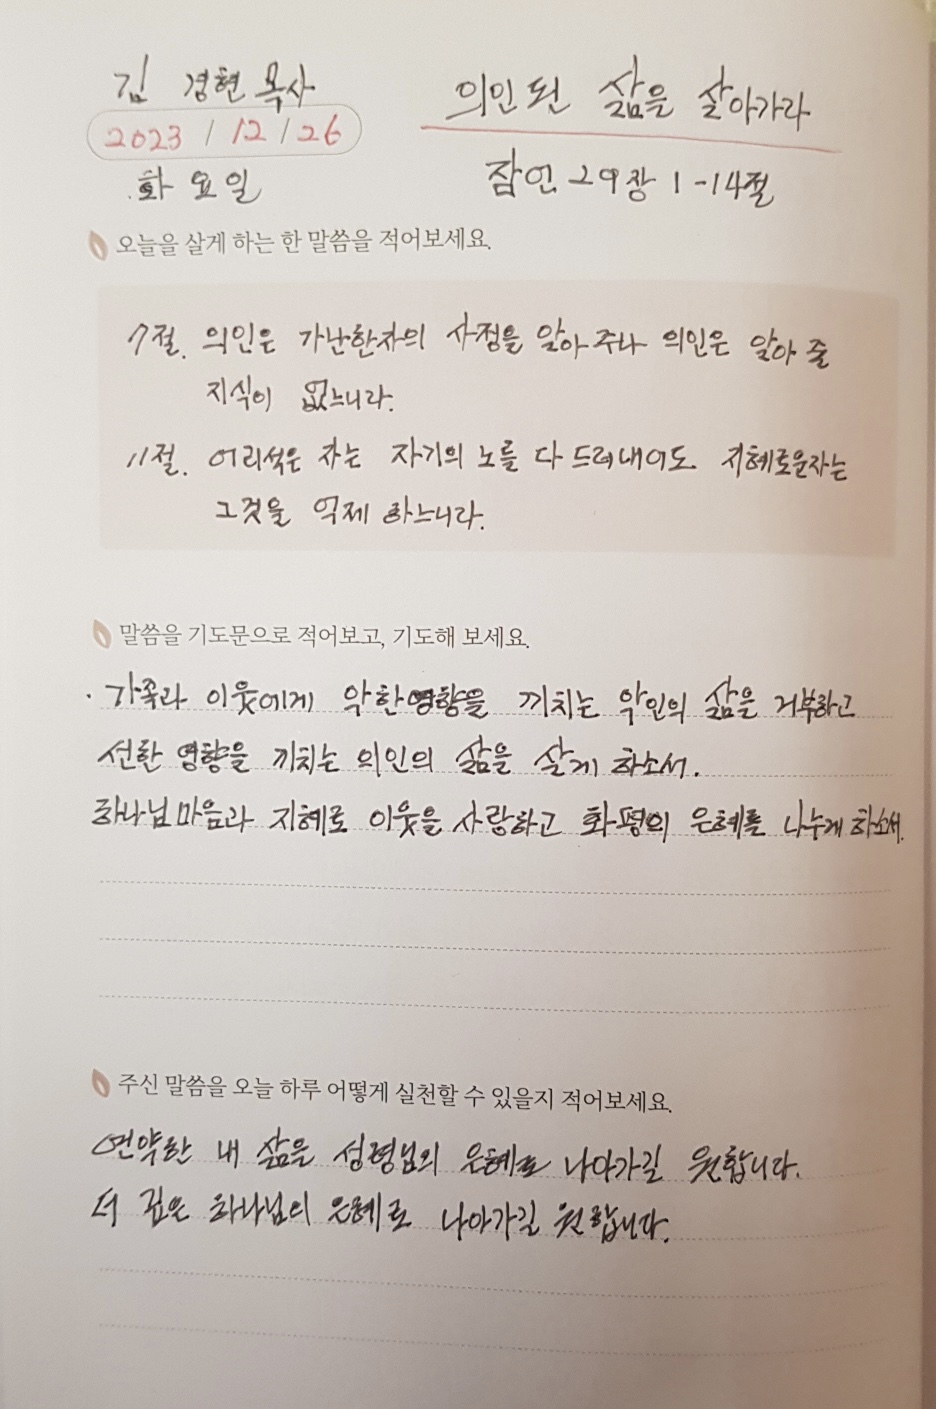 김 경현 목사
의인 된 삶을 살아가라
2023 / 12 / 26
화요일
잠언 29장 1-14절
오늘을 살게 하는 한 말씀을 적어보세요.
7절. 의인은 가난한자의 사정을 알아 주나 의인은 알아 줄
지식이 없느니라.
11절. 어리석은 자는 자기의 노를 다 드러내어도 지혜로운자는
그것을 억제 하느니라.
말씀을 기도문으로 적어보고, 기도해 보세요.
· 가족과 이웃에게 악한영향을 끼치는 악인의 삶을 거부하고
선한 영향을 끼치는 의인의 삶을 살게 하소서.
하나님마음과 지혜로 이웃을 사랑하고 화평의 은혜를 나누게 하소서.
주신 말씀을 오늘 하루 어떻게 실천할 수 있을지 적어보세요.
연약한 내 삶을 성령님의 은혜로 나아가길 원합니다.
더 깊은 하나님의 은혜로 나아가길 원합니다.